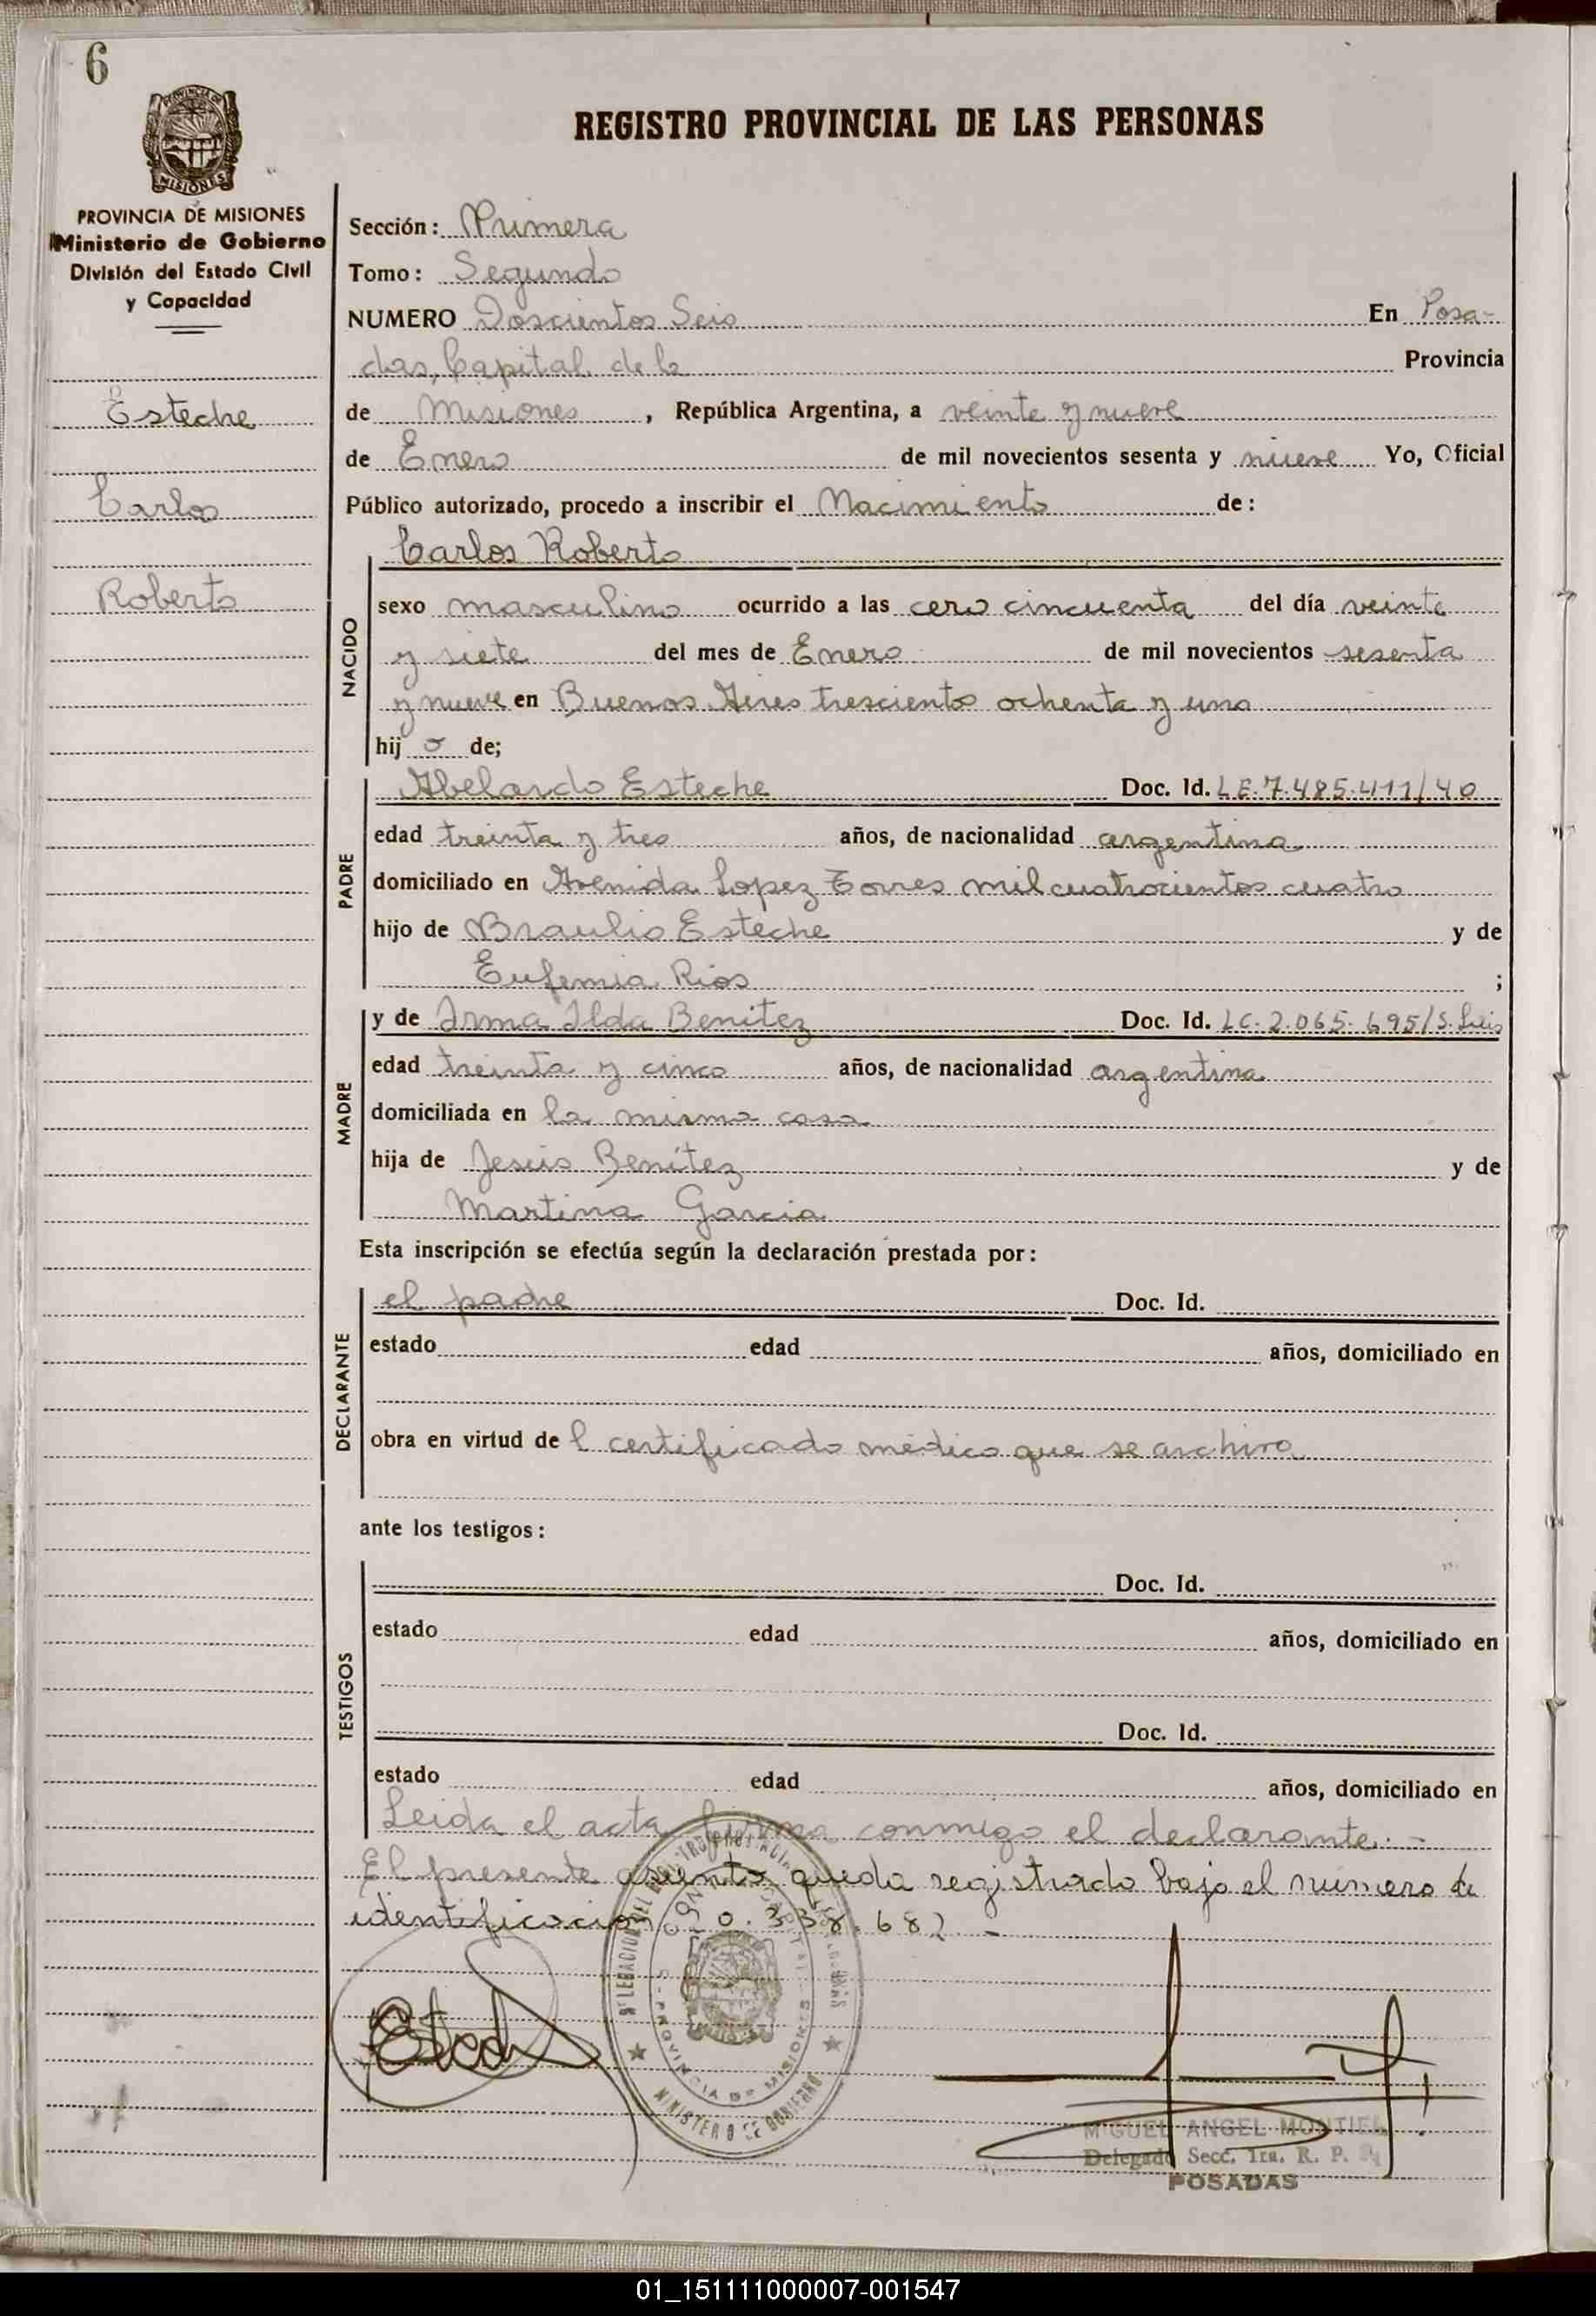 6
PROVINCIA DE
MISIONES
PROVINCIA DE MISIONES
Ministerio de Gobierno
División del Estado Civil
y Capacidad
Esteche
Carlos
Roberto
REGISTRO PROVINCIAL DE LAS PERSONAS
Sección: Primera
Tomo: Segundo
NUMERO Doscientos Seis En Posa-
das, Capital de la Provincia
de Misiones, República Argentina, a veinte y nueve
de Enero de mil novecientos sesenta y nueve Yo, Oficial
Público autorizado, procedo a inscribir el Nacimiento de:
Carlos Roberto
NACIDO
sexo masculino ocurrido a las cero cincuenta del día veinte
y siete del mes de Enero de mil novecientos sesenta
y nueve en Buenos Aires tresciento ochenta y uno
hij o de;
PADRE
Abelardo Esteche Doc. Id. LE.7.485.411/40
edad treinta y tres años, de nacionalidad argentina
domiciliado en Avenida Lopez Torres mil cuatrocientos cuatro
hijo de Braulio Esteche y de
Eufemia Rios ;
MADRE
y de Irma Ilda Benitez Doc. Id. LC.2.065.695/S.Luis
edad treinta y cinco años, de nacionalidad argentina
domiciliada en la misma casa
hija de Jesús Benítez y de
Martina Garcia
Esta inscripción se efectúa según la declaración prestada por:
DECLARANTE
el padre Doc. Id.
estado edad años, domiciliado en
obra en virtud de l certificado médico que se archiva
ante los testigos:
TESTIGOS
Doc. Id.
estado edad años, domiciliado en
Doc. Id.
estado edad años, domiciliado en
Leida el acta firma conmigo el declarante.-
El presente asiento queda registrado bajo el número de
identificación 20.338.682 -
Estech
PROVINCIA DE MISIONES
MINISTERIO DE GOBIERNO
MIGUEL ANGEL MONTIEL
Delegado Secc. 1ra. R. P.
POSADAS
01_151111000007-001547